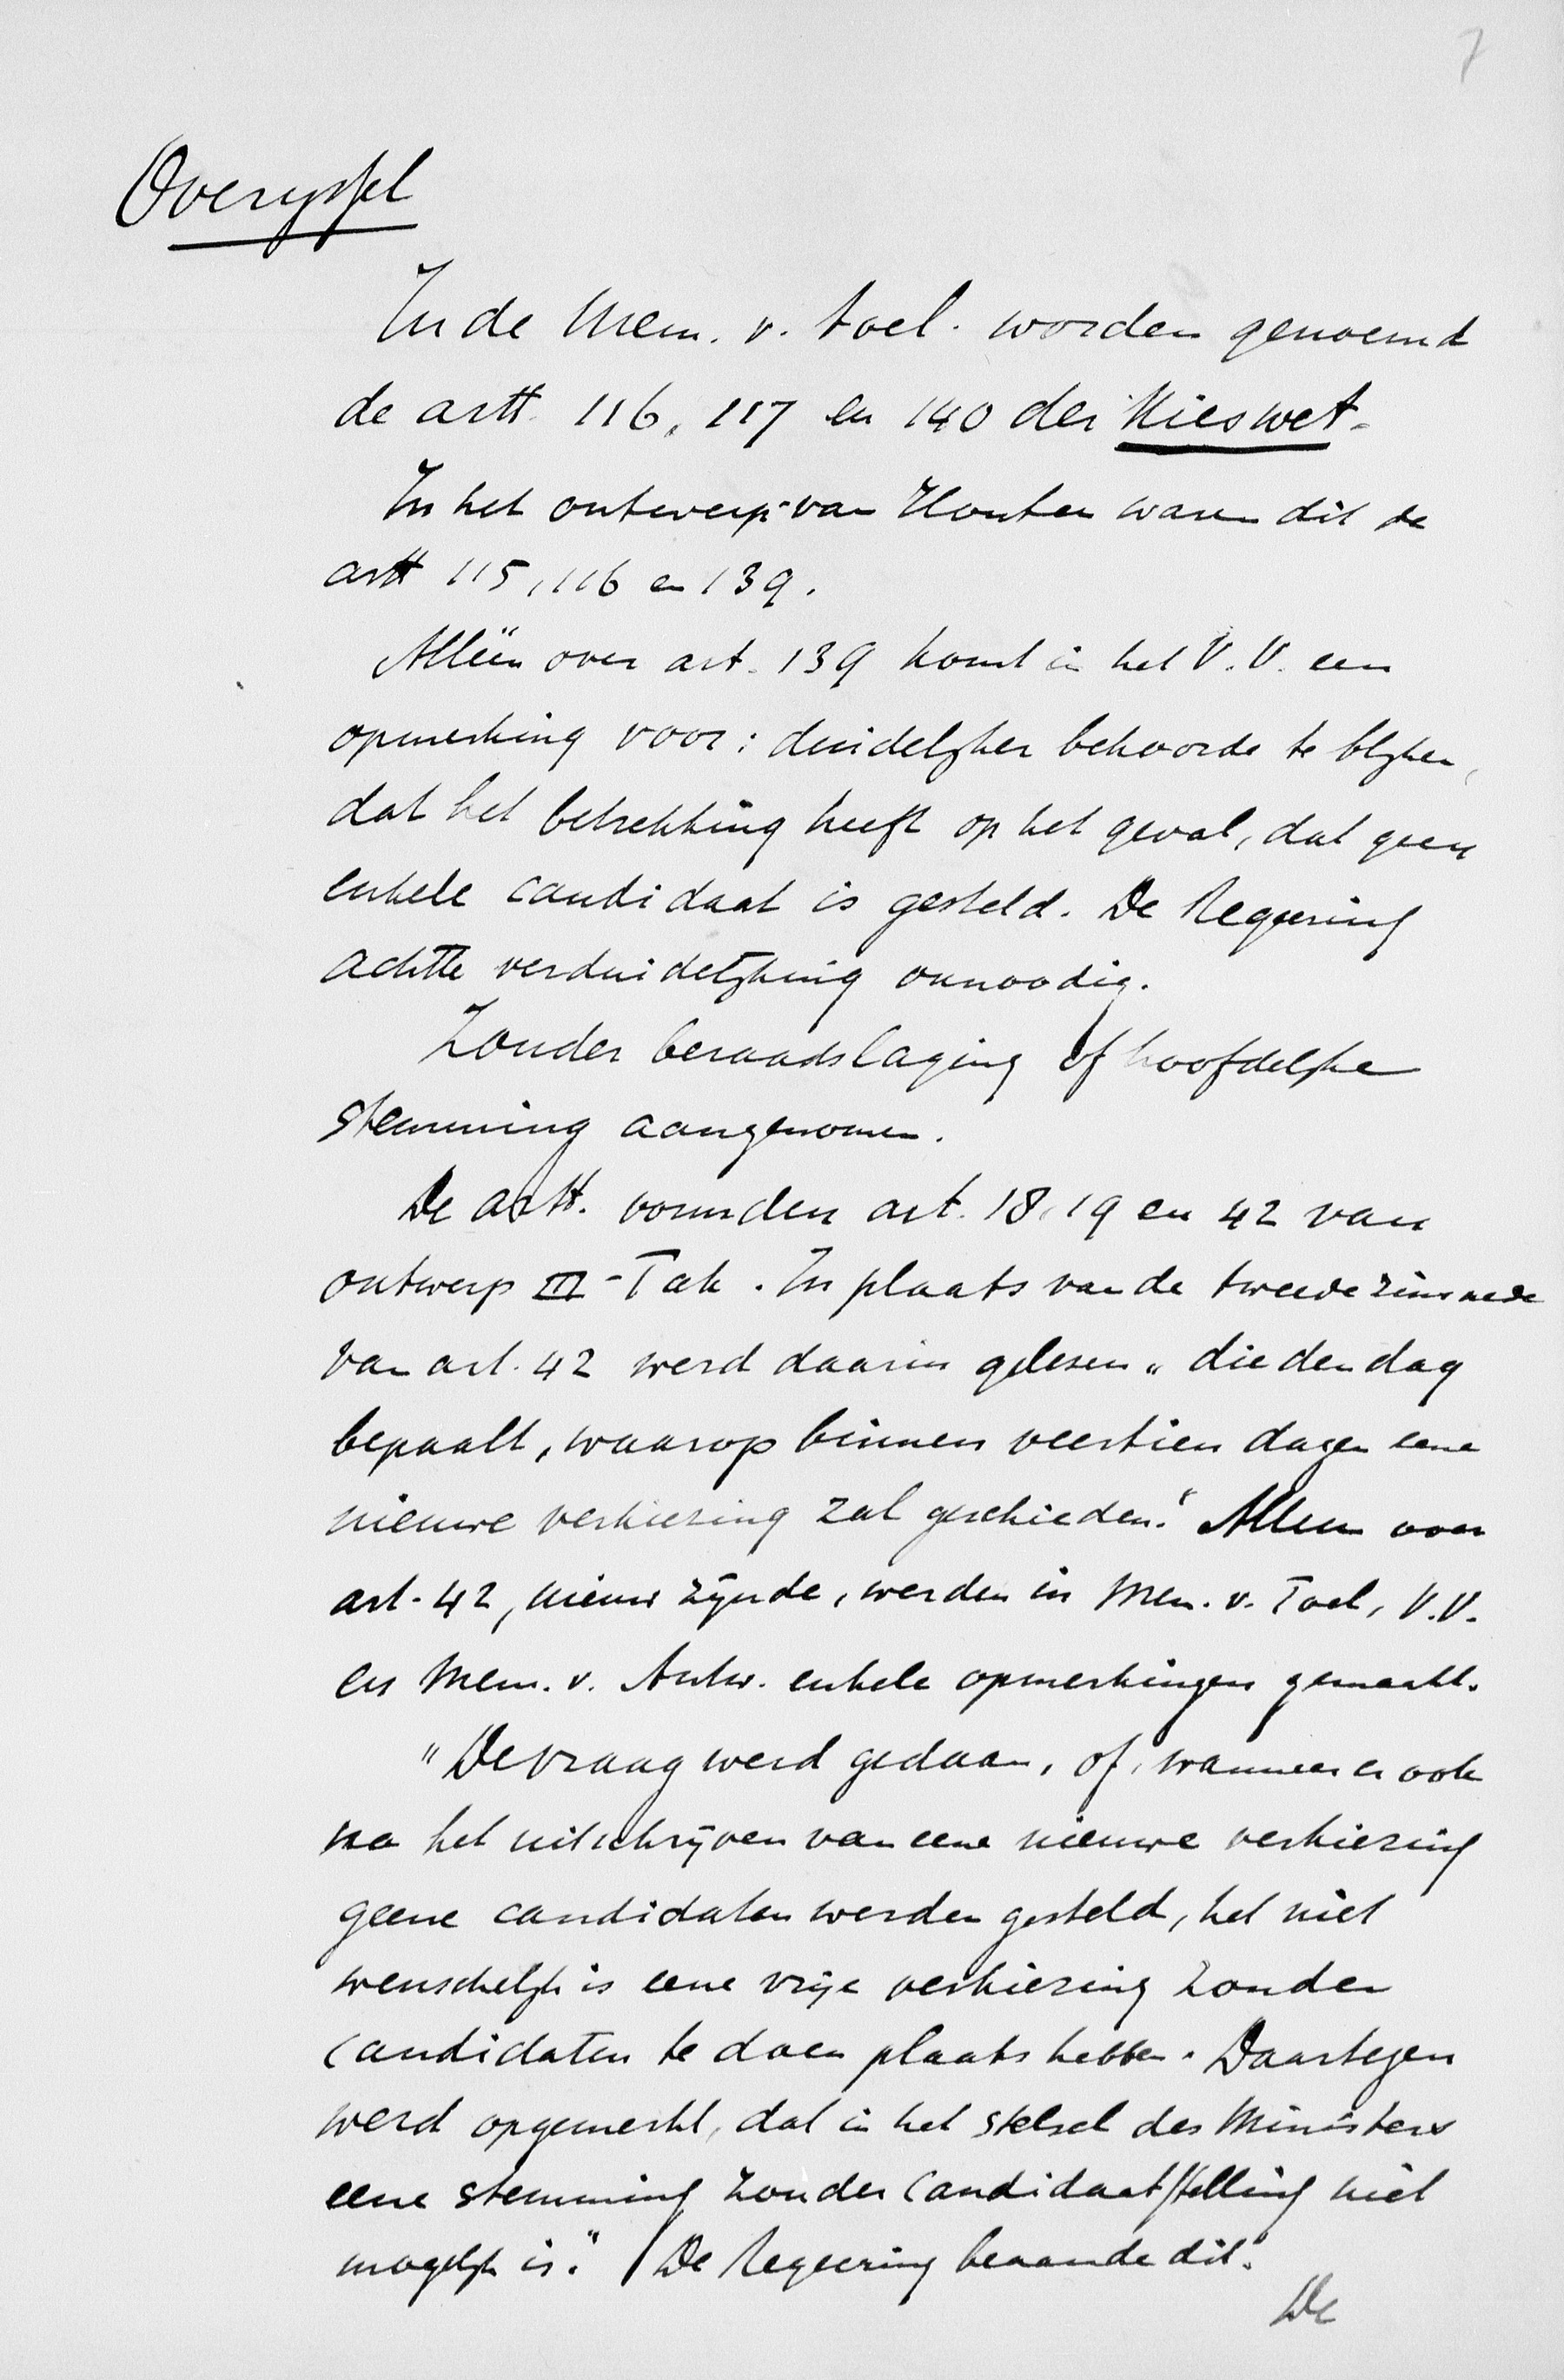 7
Overyssel
In de Mem. v. toel. worden genoemd
de artt. 116, 117 en 140 der Kieswet.
In het ontwerp-van Houten waren dit de
artt 115, 116 en 139.
Alléén over art. 139 komt in het V.V. een
opmerking voor: duidelijker behoorde te blijken,
dat het betrekking heeft op het geval, dat geen
enkele candidaat is gesteld. De Regeering
achtte verduidelijking onnoodig.
Zonder beraadslaging of hoofdelijke
stemming aangenomen.
De artt. vormden art. 18, 19 en 42 van
ontwerp III-Tak. In plaats van de tweede zinsnede
van art. 42 werd daarin gelezen „die den dag
bepaalt, waarop binnen veertien dagen eene
nieuwe verkiezing zal geschieden." Alleen over
art. 42, nieuw zijnde, werden in Mem. v. Toel, V.V.
en Mem. v. Antw. enkele opmerkingen gemaakt.
"De vraag werd gedaan, of, wanneer er ook
na het uitschrijven van eene nieuwe verkiezing
geene candidaten werden gesteld, het niet
wenschelijk is eene vrije verkiezing zonder
candidaten te doen plaats hebben. Daartegen
werd opgemerkt, dat in het stelsel des Ministers
eene stemming zonder candidaatstelling niet
mogelijk is." De Regeering beaamde dit."
De